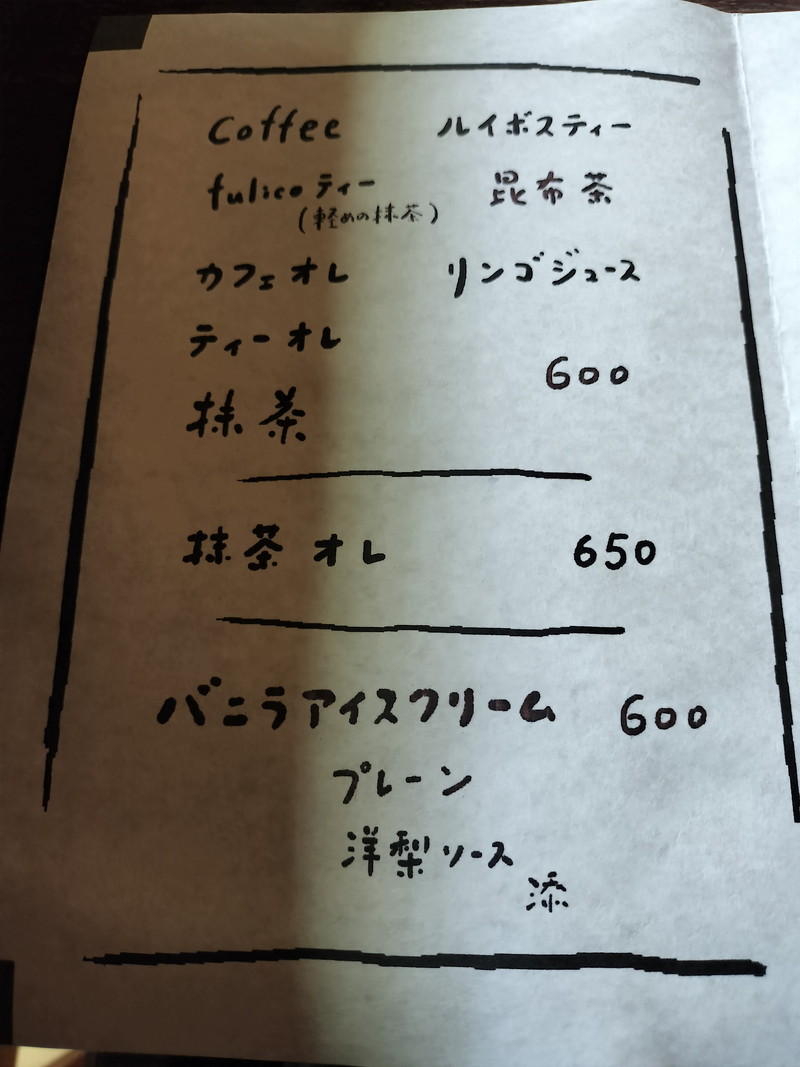 Coffee
ルイボスティー
fulico ティー
(軽めの抹茶)
昆布茶
カフェオレ
リンゴジュース
ティーオレ
600
抹茶
抹茶オレ 650
バニラアイスクリーム 600
プレーン
洋梨ソース
添